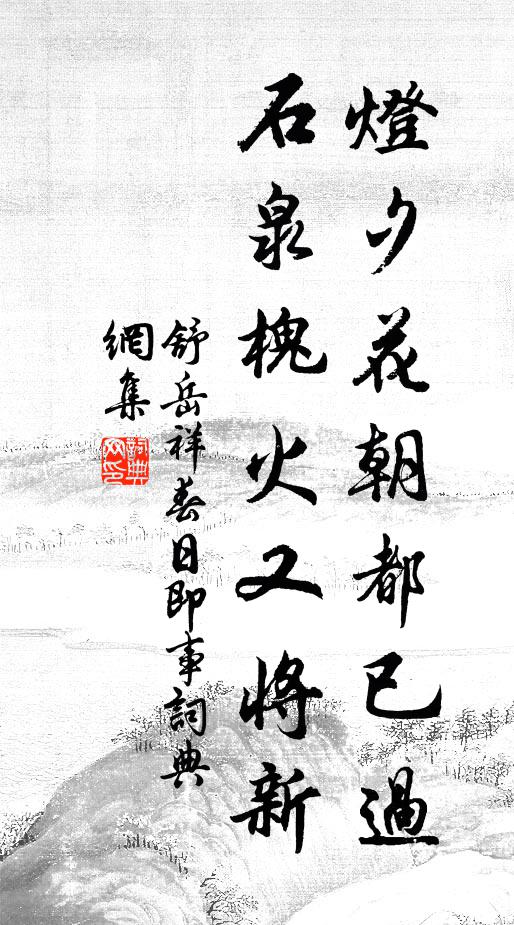 燈夕花朝都已過
石泉槐火又將新
舒岳祥春日即事詞典
網集
詞典網印